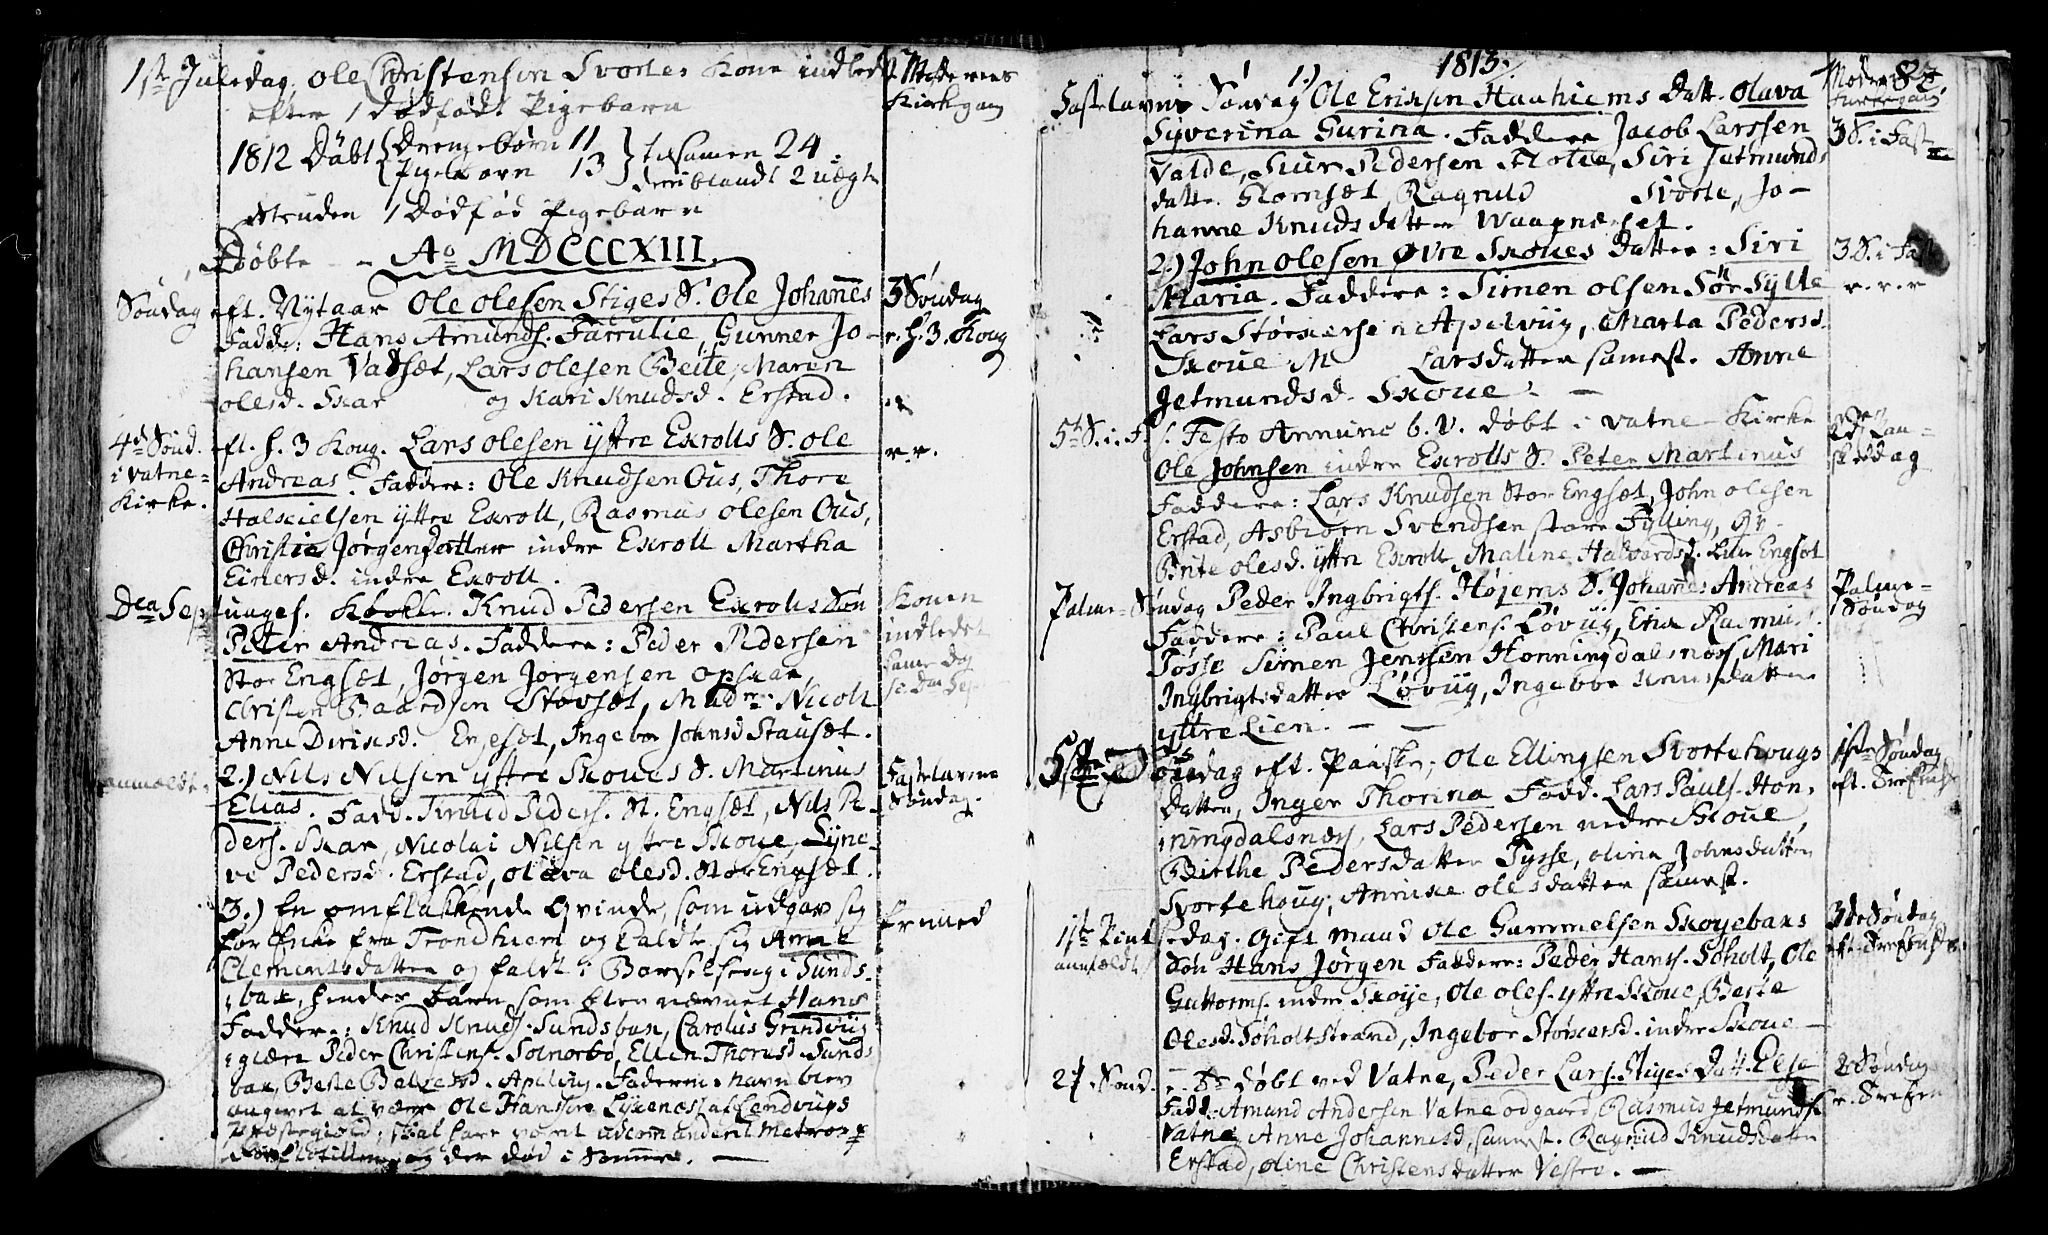 1ste Juledag, Ole Christensen Svortes Kone indledt
efter 1 dødfødt Pigebarn
Moderens
Kirkegang
1812 Døbt Drengebørn 11
Pigebørn 13
tilsamen 24
deriblandt 2 uægte
desuden 1 Dødfød Pigebarn
Døbte - Ao MDCCCXIII.
Søndag eft. Nytaar Ole Olesen Stiges S. Ole Johanes
Fadde: Hans Amunds. Farrulie, Gunner Jo-
hansen Vadset, Lars Olesen Beite, Maren
Olesd. Skar og Kari Knudsd. Erstad.
3 Søndag
e. H. 3. Kong
4de Sønd. eft. H. 3 Kong. Lars Olesen yttre Exrolls S. Ole
i Vatne-
Kirke.
Andreas. Faddere: Ole Knudsen Ous, Thore
Halskielsen yttre Exroll, Rasmus Olesen Ous,
Christie Jørgensdatter indre Exroll Martha
Einersd. indre Exroll.
Dca Septuages. Knud Pedersen Exrolls Søn
Peter Andreas. Faddere: Peder Pedersen
Stor Engset, Jørgen Jørgensen Opsaa,
Christen Baardsen Stavset, Mad. Nicoll
Anne Dirixsd. Engeset, Ingebor Johnsd Stauset.
Konen
indledet
same dag
2.) Nils Nilsen yttre Skoues S. Martinus
Elias. Fadd. Knud Peders. St. Engset, Nils Pe-
ders. Skar, Nicolai Nilsen yttre Skoue, Syne-
ve Pedersd. Erstad, Olava Olesd. Stor Engset.
Fastelavns
Søndag.
3.) En omflakkende Qvinde, som udgav sig
for Enke fra Trondhiem og kaldte sig Anne
Clementsdatter og faldt i Barselseng i Sunds-
bak, hendes Barn som blev nævnet Hans
Faddere: Knud Knuds. Sundsbak, Carolus Grindvig
Peder Christens. Solnørbø, Ellen Thoresd. Sunds
bak, Berte Apelvig. Faderens navn blev
angivet at være Ole Hansen
Præstegield, skal have været udcomanderet
og der død i Sommer.
fremmed
1813.
83.
Moderens
Kirkegang
Fastelavns Søndag 1.) Ole Erixsen Hauhiems Datt. Olava
Syverina Gurina. Faddere Jacob Larssen
Valde, Siur Pedersen Flotie, Siri Jetmunds
datter Glomset Ragnild Svorte, Jo-
hanne Knudsdatter Waagneset.
3 S. i Fast
2.) John Olesen Øvre Skoues Datter: Siri
Maria. Faddere: Simen Olsen Sør Sylte
Lars Størkersen Apelviig, Marta Peders.
Skoue M Larsdatter samest. Anne
Jetmundsd. Skoue.
3 S. i Faste
5te S. i F. Festo Annunc b. V. døbt i Vatne Kirke
Ole Johnsen indre Exrolls S. Peter Martinus
Faddere: Lars Knudsen Stor Engset, John Olesen
Erstad, Asbiørn Svendsen store Fylling, Gv.
Brite Olesd. yttre Exroll, Maline Halvardsd. Lille Engset
Palme-Søndag Peder Ingbrigts. Højems S. Johanes Andreas
Faddere: Paul Christens. Løviig, Erik Rasmus
Fosse Simen Jenssen Honningdalsnæs Mari
Ingbrigtsdatter Løviig, Ingebor Knudsdatter
yttre Lien.
Palme-
Søndag
5te Søndag eft. Paaske, Ole Ellingsen Svortehougs
Datter, Inger Thorina Fadd. Lars Pauls. Hon-
ningdalsnæs, Lars Pedersen nedre Skoue,
Birthe Pedersdatter Fysse, Oline Johnsdatter
Svortehoug, Annike Olesdatter samest.
1ste Søndag
eft. Trefold
1ste Pintsedag. Gift mand Ole Gammelsen Skoyebaks
Søn Hans Jørgen Faddere: Peder Hans. Søholt, Ole
Guttorms. indre Skoye, Ole Oles. yttre Skoue, Berte
Olesd. Søholtstrand, Ingebor Størkersd. indre Skoue
3de Søndag
2de Sønd. døbt ved Vatne, Peder Lars. Stiges Datt. Else
Fadd. Amund Andersen Vatne Odgaard, Rasmus Jetmunds.
Vatne, Anne Johannesd. samest. Ragnild Knudsdatter
Erstad, Oline Christensdatter Vestre.
2 Søndag